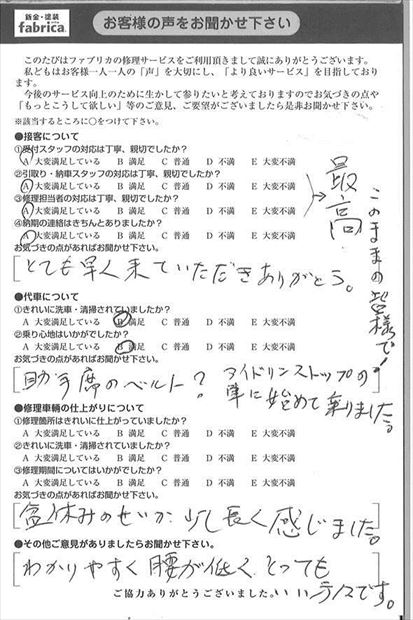 鈑金・塗装
fabrica.
お客様の声をお聞かせ下さい
このたびはファブリカの修理サービスをご利用頂きまして誠にありがとうございます。
私どもはお客様一人一人の「声」を大切にし、「より良いサービス」を目指しております。
今後のサービス向上のために生かして参りたいと考えておりますのでお気づきの点や
「もっとこうして欲しい」等のご意見、ご要望がございましたら是非お聞かせ下さい。
※該当するところに○をつけて下さい。
●接客について
①受付スタッフの対応は丁寧、親切でしたか?
A 大変満足している B 満足 C 普通 D 不満 E 大変不満
②引取り・納車スタッフの対応は丁寧、親切でしたか?
A 大変満足している B 満足 C 普通 D 不満 E 大変不満
③修理担当者の対応は丁寧、親切でしたか?
A 大変満足している B 満足 C 普通 D 不満 E 大変不満
④納期の連絡はきちんとありましたか?
A 大変満足している B 満足 C 普通 D 不満 E 大変不満
最高
このままの皆様で!
お気づきの点があればお聞かせ下さい。
とても早く来ていただきありがとう。
●代車について
①きれいに洗車・清掃されていましたか?
A 大変満足している B 満足 C 普通 D 不満 E 大変不満
②乗り心地はいかがでしたか?
A 大変満足している B 満足 C 普通 D 不満 E 大変不満
お気づきの点があればお聞かせ下さい。
助手席のベルト? アイドリンストップの
車に始めて乗りました。
●修理車輌の仕上がりについて
①修理箇所はきれいに仕上がっていましたか?
A 大変満足している B 満足 C 普通 D 不満 E 大変不満
②きれいに洗車・清掃されていましたか?
A 大変満足している B 満足 C 普通 D 不満 E 大変不満
③修理期間についてはいかがでしたか?
A 大変満足している B 満足 C 普通 D 不満 E 大変不満
お気づきの点があればお聞かせ下さい。
盆休みのせいか 少し長く感じました。
●その他ご意見がありましたらお聞かせ下さい。
わかりやすく 腰が低く とっても
いい
です。
ご協力ありがとうございました。